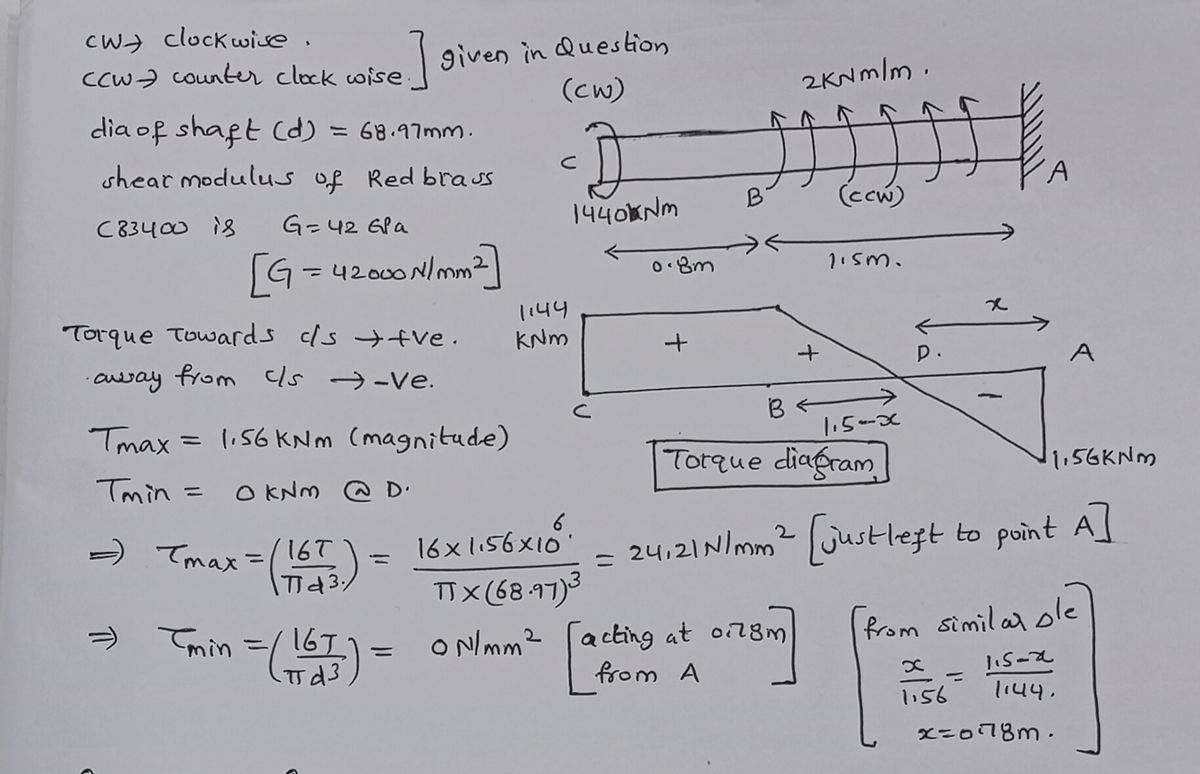 CW → clockwise .
CCW → counter clock wise.
given in Question
dia of shaft (d) = 68.97mm.
shear modulus of Red brass
C83400 is G = 42 GPa
[G = 42000 N/mm²]
(CW)
2KNm/m .
C
B
(CCW)
A
0.8m
1.5m.
Torque Towards c/s → +ve.
away from c/s → -ve.
Tmax = 1.56 KNm (magnitude)
Tmin = 0 KNm @ D.
1.44
KNm
+
+
D.
x
A
C
B
1.5-x
-
1.56KNm
Torque diagram
⇒ τmax = (16T/πd³) = 16×1.56×10⁶/π×(68.97)³ = 24.21 N/mm² [just left to point A]
⇒ τmin = (16T/πd³) = 0 N/mm² [acting at 0.78m
from A]
[from similar Δle
x/1.56 = 1.5-x/1.44.
x=0.78m.]